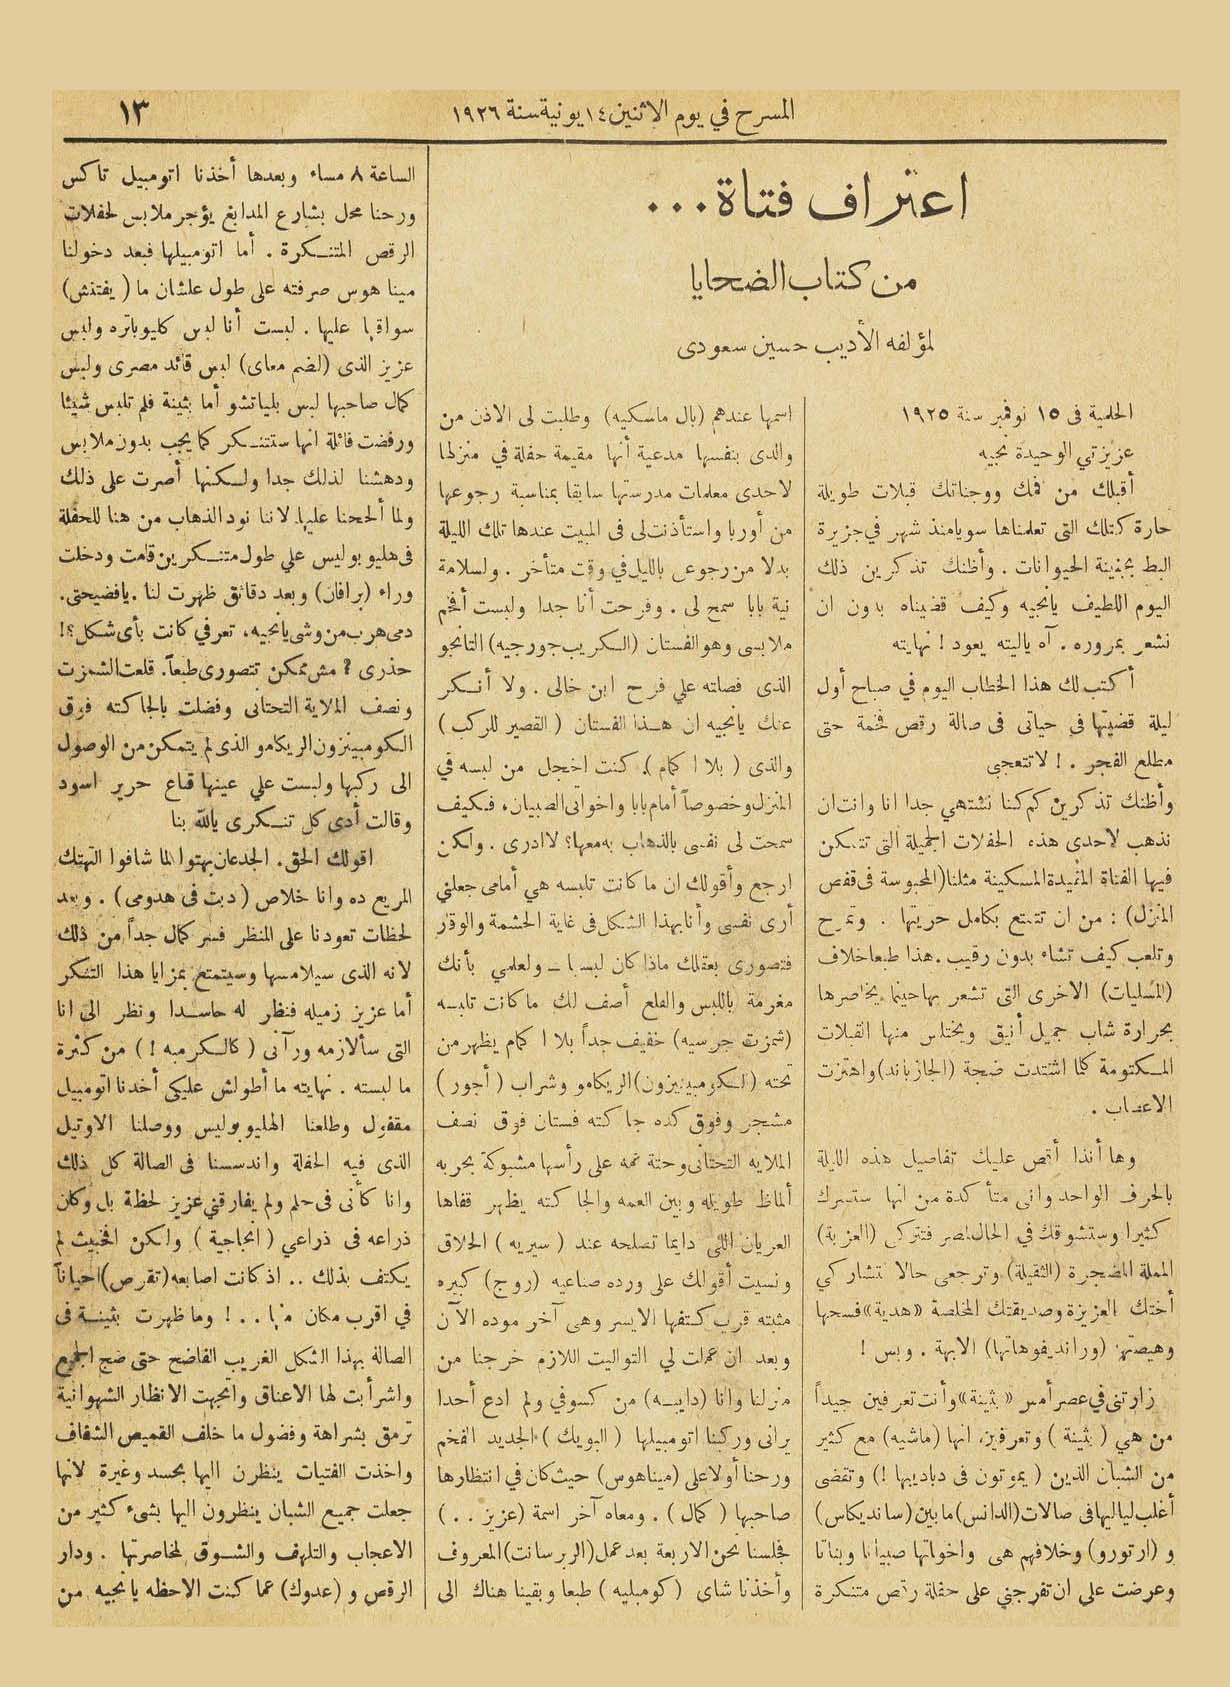 المسرح في يوم الاثنين ١٤ يونية سنة ١٩٢٦
١٣
اعتراف فتاة . . .
من كتاب الضحايا
لمؤلفه الأديب حسين سعودى
الحلمية فى ١٥ نوفمبر سنة ١٩٢٥
عزيزتي الوحيدة نجيه
أقبلك من فمك ووجناتك قبلات طويلة
حارة كتلك التى تعلمناها سويا منذ شهر في جزيرة
البط بجنينة الحيوانات . وأظنك تذكرين ذلك
اليوم اللطيف يانجيه وكيف قضيناه بدون ان
نشعر بمروره . آه ياليته يعود ! نهايته
أكتب لك هذا الخطاب اليوم في صباح أول
ليلة قضيتها في حياتى فى صالة رقص فخمة حتى
مطلع الفجر . ! لا تتعجبى
وأظنك تذكرين كم كنا نشتهي جدا انا وانت ان
نذهب لاحدى هذه الحفلات الجميلة التى تتمكن
فيها الفتاة المقيدة المسكينة مثلنا (المحبوسة فى قفص
المنزل) : من ان تتمتع بكامل حريتها . وتمرح
وتلعب كيف تشاء بدون رقيب . هذا طبعا خلاف
(المسليات) الاخرى التى تشعر بها حينما يخاصرها
بحرارة شاب جميل أنيق ويختلس منها القبلات
المكتومة كلما اشتدت ضجة (الجازباند) واهتزت
الاعصاب .
وها أنذا أقص عليك تفاصيل هذه الليلة
بالحرف الواحد وانى متأكدة من انها ستسرك
كثيرا وستشوقك في الحال لمصر فتتركى (العزبة)
المملة المضجرة (الثقيلة) وترجعى حالا تشاركي
أختك العزيزة وصديقتك المخلصة «هدية» فسحها
وهيصتها (ورانديفوهاتها) الابهة . وبس !
زارتنى في عصر أمس «بثينة» وأنت تعرفين جيداً
من هي (بثينة) وتعرفين انها (ماشيه) مع كثير
من الشبان الذين (يموتون فى دباديبها !) وتقضى
أغلب لياليها فى صالات (الدانس) ما بين (سانديكاس)
و (ارتورو) وخلافهم هى واخواتها صبيانا وبناتا
وعرضت على ان تفرجني على حفلة رقص متنكرة
اسمها عندهم (بال ماسكيه) وطلبت لى الاذن من
والدى بنفسها مدعية أنها مقيمة حفلة في منزلها
لاحدى معلمات مدرستها سابقا بمناسبة رجوعها
من أوربا واستأذنت لى فى المبيت عندها تلك الليلة
بدلا من رجوعى بالليل في وقت متأخر . ولسلامة
نية بابا سمح لى . وفرحت أنا جدا ولبست أفخم
ملابسى وهو الفستان (الكريب جورجيه) التانجو
الذى فصلته علي فرح ابن خالى . ولا أنكر
عنك يانجيه ان هذا الفستان (القصير للركب)
والذى (بلا اكمام) . كنت اخجل من لبسه في
المنزل وخصوصاً أمام بابا واخوانى الصبيان ، فكيف
سمحت لى نفسى بالذهاب به معها؟ لا ادرى . ولكن
ارجع وأقولك ان ما كانت تلبسه هي أمامى جعلني
أرى نفسى وأنا بهذا الشكل فى غاية الحشمة والوقار
فتصورى بعقلك ماذا كان لبسها – ولعلمي بأنك
مغرمة باللبس والقلع أصف لك ما كانت تلبسه
(شمزت جرسيه) خفيف جداً بلا اكمام يظهر من
تحته (الكومبينيزون) الريكامو وشراب (أجور)
مشجر وفوق كده جاكته فستان فوق نصف
الملايه التحتانى وحتة عمه على رأسها مشبوكة بحربه
ألماظ طويله وبين العمه والجاكته يظهر قفاها
العريان اللى دايما تصلحه عند (سيريه) الحلاق
ونسيت أقولك على ورده صناعيه (روج) كبيره
مثبته قرب كتفها الايسر وهى آخر موده الآن
وبعد ان عملت لي التواليت اللازم خرجنا من
منزلنا وانا (دايبه) من كسوفي ولم ادع أحدا
يرانى وركبنا اتومبيلها (البويك) الجديد الفخم
ورحنا أولا على (ميناهوس) حيث كان في انتظارها
صاحبها (كمال) . ومعاه آخر اسمة (عزيز . . )
فجلسنا نحن الاربعة بعد عمل (الربرسانت) المعروف
وأخذنا شاى (كومبليه) طبعا وبقينا هناك الى
الساعة ٨ مساء وبعدها أخذنا اتومبيل تاكس
ورحنا محل بشارع المدابغ يؤجر ملابس لحفلات
الرقص المتنكرة . أما اتومبيلها فبعد دخولنا
مينا هوس صرفته على طول علشان ما (يفتنش)
سواقها عليها . لبست أنا لبس كليوباتره ولبس
عزيز الذى (لضم معاى) لبس قائد مصرى ولبس
كمال صاحبها لبس بلياتشو أما بثينة فلم تلبس شيئا
ورفضت قائلة انها ستتنكر كما يجب بدون ملابس
ودهشنا لذلك جدا ولكنها أصرت على ذلك
ولما ألححنا عليها لاننا نود الذهاب من هنا للحفلة
فى هليوبوليس علي طول متنكرين قامت ودخلت
وراء (برافان) وبعد دقائق ظهرت لنا . يافضيحتى .
دمى هرب من وشى يانجيه ، تعرفي كانت بأى شكل؟!
حذرى ؟ مش ممكن تتصورى طبعاً . قلعت الشمزت
ونصف الملاية التحتانى وفضلت بالجاكته فوق
الكومبينزون الريكامو الذى لم يتمكن من الوصول
الى ركبها ولبست علي عينها قناع حرير اسود
وقالت أدى كل تنكرى يالله بنا
اقولك الحق . الجدعان بهتوا لما شافوا التهتك
المريع ده وانا خلاص (دبت فى هدومى) . وبعد
لحظات تعودنا على المنظر فسر كمال جداً من ذلك
لانه الذى سيلامسها وسيتمتع بمزايا هذا التنكر
أما عزيز زميله فنظر له حاسدا ونظر الى انا
التى سألازمه ورآنى (كالكرمبه !) من كثرة
ما لبسته . نهايته ما أطولش عليكى أخدنا اتومبيل
مقفول وطلعنا الهليوبوليس ووصلنا الاوتيل
الذى فيه الحفلة واندسسنا فى الصالة كل ذلك
وانا كأنى فى حلم ولم يفارقني عزيز لحظة بل وكان
ذراعه فى ذراعي (انجاجية) ولكن الخبيث لم
يكتف بذلك .. اذ كانت اصابعه (تقرص) احياناً
في اقرب مكان منها . . ! وما ظهرت بثينة فى
الصالة بهذا الشكل الغريب الفاضح حتى ضج الجمع
واشرأبت لها الاعناق واتجهت الانظار الشهوانية
ترمق بشراهة وفضول ما خلف القميص الشفاف
واخذت الفتيات ينظرن اليها بحسد وغيرة لانها
جعلت جميع الشبان ينظرون اليها بشىء كثير من
الاعجاب والتلهف والشوق لمخاصرتها . ودار
الرقص و (عدوك) عما كنت الاحظه يانجيه من